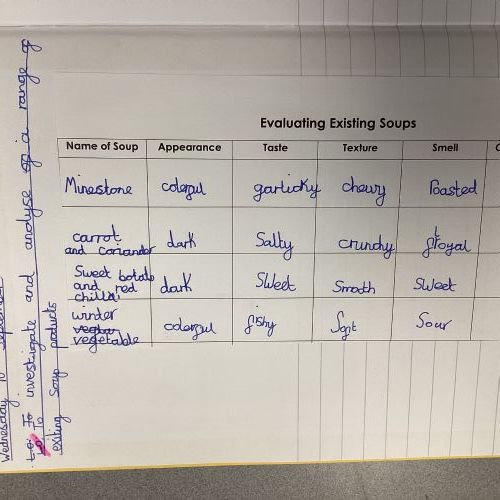 Evaluating Existing Soups
Name of Soup Appearance Taste Texture Smell
Minestone colerful garlicky chewy Roasted
carrot
and coriander dark Salty crunchy
Sweet botato
and red
chilli dark Sweet Smooth Sweet
winter
vegetable colerful fishy Soft Sour
Wednesday 10
L.O: To investigate and analyse of a range of
existing soup products